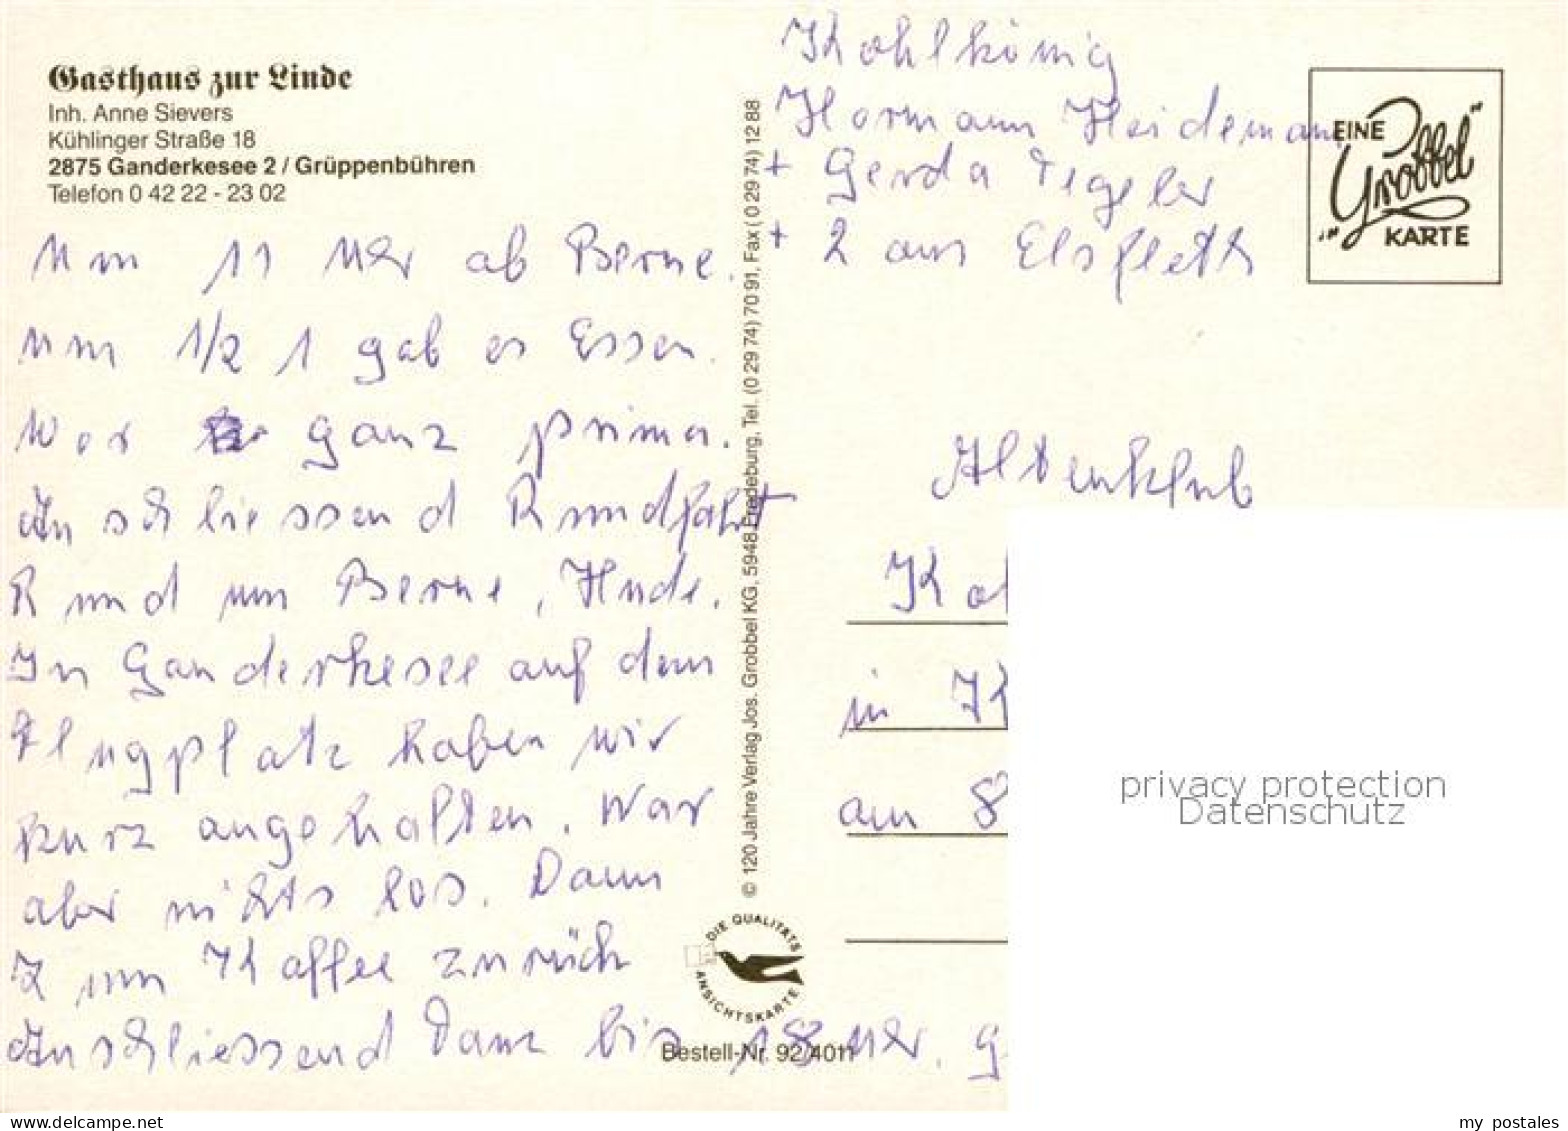 Gasthaus zur Linde
Inh. Anne Sievers
Kühlinger Straße 18
2875 Ganderkesee 2 / Grüppenbühren
Telefon 0 42 22 - 23 02
Um 11 Uhr ab Berne.
um 1/2 1 gab es Essen.
War ganz prima.
Anschliessend Rundfahrt
Rund um Berne, Hude.
In Ganderkesee auf dem
Flugplatz haben wir
kurz angehalten. War
aber nichts los. Dann
Zum Kaffee zurück
Anschliessend Tanz bis 18 Uhr. g
© 120 Jahre Verlag Jos. Grobbel KG, 5948 Fredeburg, Tel. (0 29 74) 70 91, Fax (0 29 74) 12 88
DIE QUALITÄTS
ANSICHTSKARTE
Bestell-Nr. 92/4011
Kohlkönig
Hermann Heidemann
+ Gerda Tegeler
+ 2 aus Elsfleth
EINE
"Grobbel"
KARTE
Altenklub
Ko
in K
am 8
privacy protection
Datenschutz
my postales